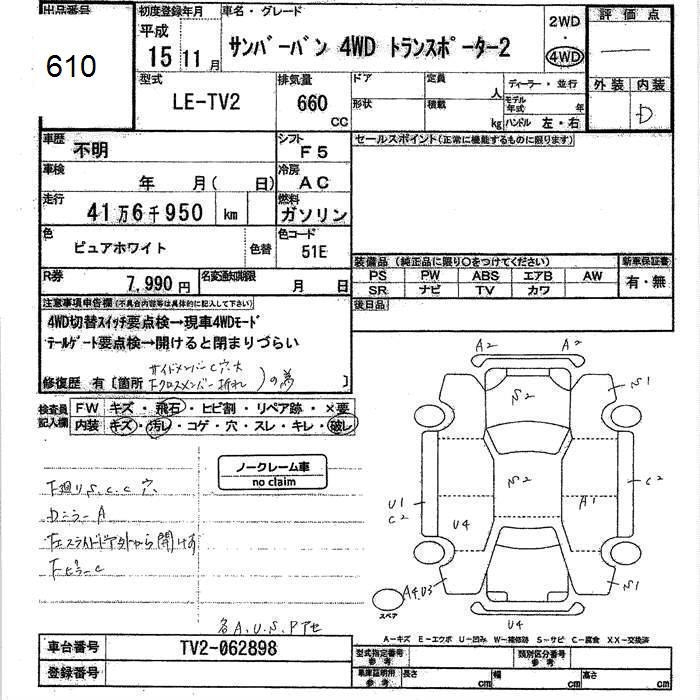 出品番号
610
初度登録年月
平成
15 11月
車名・グレード
サンバーバン 4WD トランスポーター2
2WD
・
4WD
評価点
外装 内装
D
型式
LE-TV2
排気量
660
CC
ドア
形状
定員
人
積載
kg
ディーラー・並行
モデル
年式
年
ハンドル 左・右
車歴
不明
シフト
F5
セールスポイント(正常に機能するものに限ります)
車検
年 月( 日)
冷房
AC
走行
41万6千950 km
燃料
ガソリン
色
ピュアホワイト
色替
色コード
51E
装備品 (純正品に限り○をつけてください)
新車保証書
PS PW ABS エアB AW
SR ナビ TV カワ
有・無
R券
7,990円
名変通知期限
月 日
後日品
注意事項申告欄(不具合内容等は具体的に記入して下さい)
4WD切替スイッチ要点検→現車4WDモード
テールゲート要点検→開けると閉まりづらい
サイドメンバーC穴大
修復歴 有〔箇所 Fクロスメンバー折れ )の為 〕
検査員
記入欄
FW キズ・飛石・ヒビ割・リペア跡・×要
内装 キズ・汚レ・コゲ・穴・スレ・キレ・破レ
ノークレーム車
no claim
下廻りS.C.C穴
ミラーA
スライドドア外から開け
ピラーC
各A.U.S.Pアセ
A2 A2
S2
S1
S2
U1
C2
U4
A1
C2
A4U3
S1
U4
スペア
A-キズ E-エウボ U-凹み W-補修跡 S-サビ C-腐食 XX-交換済
車台番号
TV2-062898
登録番号
型式指定番号
参考
類別区分番号
参考
車庫証明用
参考
長さ
cm
幅
cm
高さ
cm